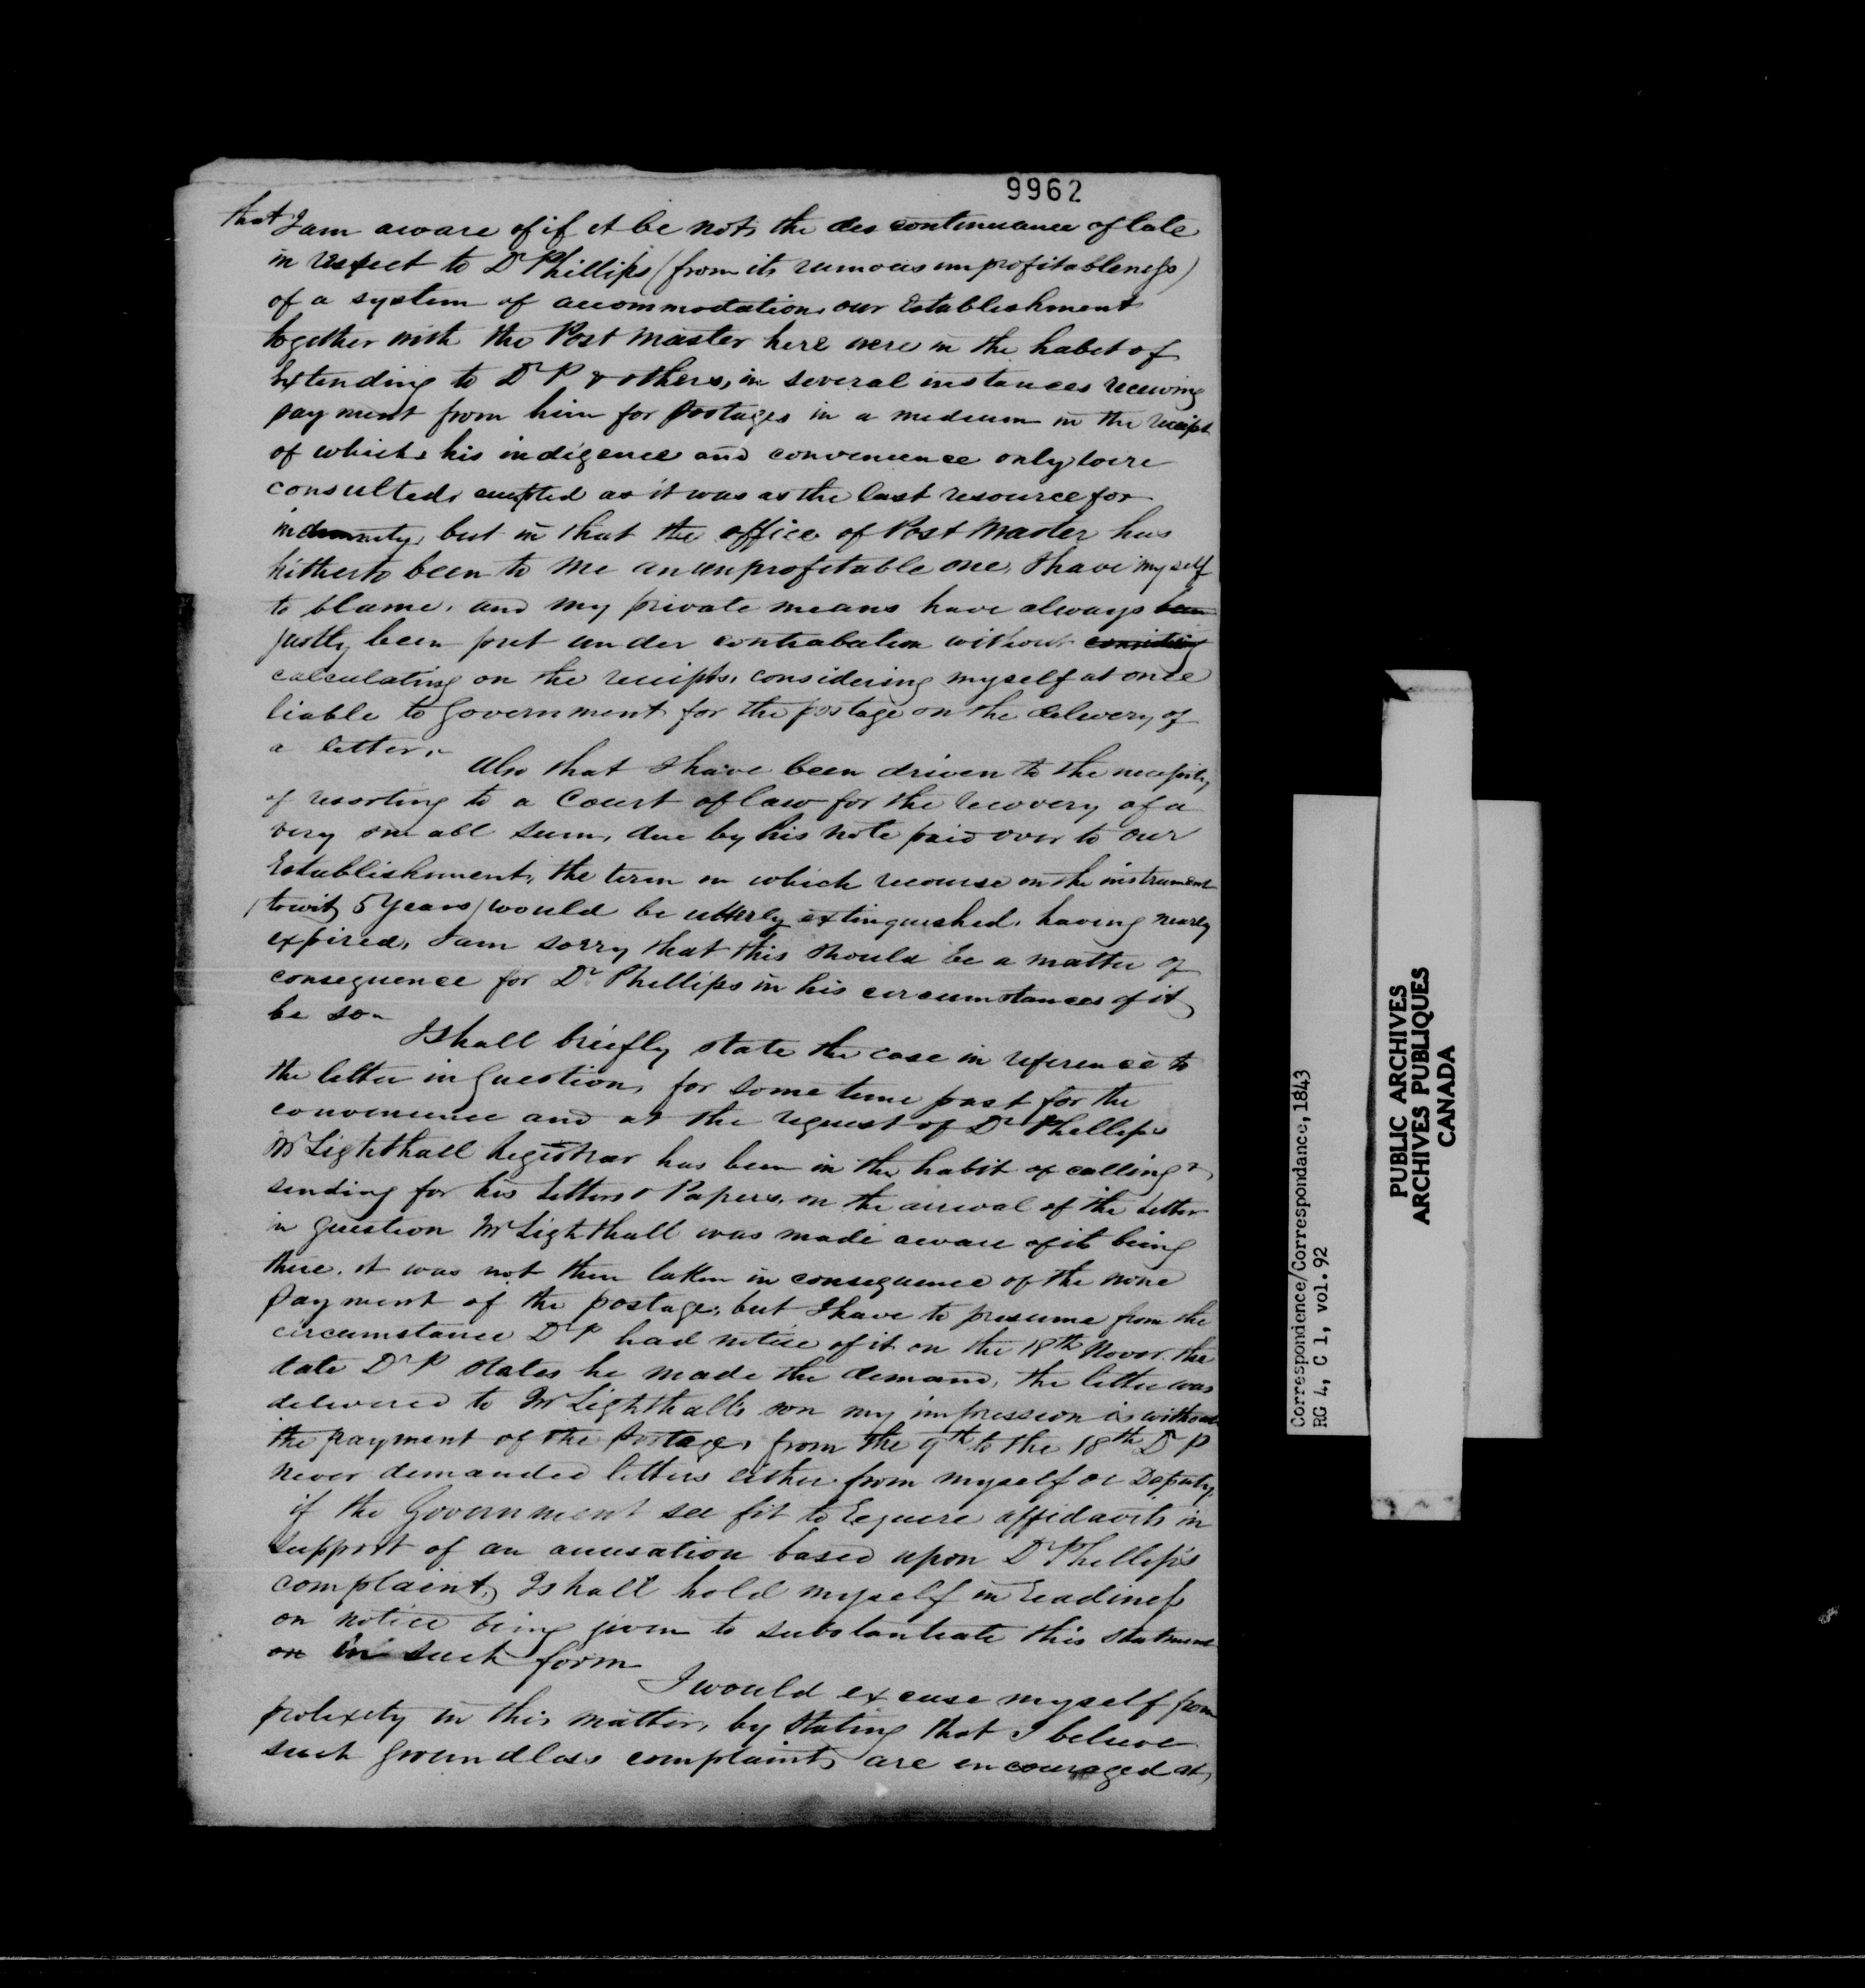 9962
that I am aware of if it be not, the discontinuance of late
in respect to Dr Phillips (from its ruinous unprofitableness)
of a system of accommodation our Establishment
together with the Post Master here were in the habit of
Extending to Dr P & others, in several instances receiving
payment from him for postages in a medium in the receipt
of which his indigence and convenience only were
consulted, accepted as it was as the last resource for
indemnity, but in that the office of Post Master has
hitherto been to me an unprofitable one, I have myself
to blame, and my private means have always been
justly been put under contrabution without considering
calculating on the receipts, considering myself at once
liable to Government for the postage on the delivery of
a letter.
Also that I have been driven to the necessity
of resorting to a Court of law for the recovery of a
very small sum, due by his note paid over to our
Establishment, the term on which recourse on the instrument
(towit 5 Years) would be utterly extinguished, having nearly
expired, I am sorry that this should be a matter of
consequence for Dr Phillips in his circumstances if it
be so
I shall briefly state the case in reference to
the letter in Question, for some time past for the
convenience and at the request of Dr Phillips
Mr Lighthall Registrar has been in the habit of calling &
sending for his Letters & Papers, on the arrival of the Letter
in question Mr Lighthall was made aware of its being
there, it was not then taken in consequence of the none
payment of the postage, but I have to presume from the
circumstance Dr P had notice of it on the 18th Novr. the
date Dr P states he made the demand, the letter was
delivered to Mr Lighthall's son my impression is without
the payment of the Postage, from the 9th to the 18th Dr P
never demanded letters either from myself or Deputy,
if the Government see fit to Require affidavits in
support of an accusation based upon Dr Phillip's
complaint, I shall hold myself in Readiness
on notice being given to substantiate this statement
on in such form
I would excuse myself from
prolixity in this matter, by stating that I believe
such groundless complaints are encouraged at,
Correspondence/Correspondance, 1843
RG 4, C 1, vol. 92
PUBLIC ARCHIVES
ARCHIVES PUBLIQUES
CANADA